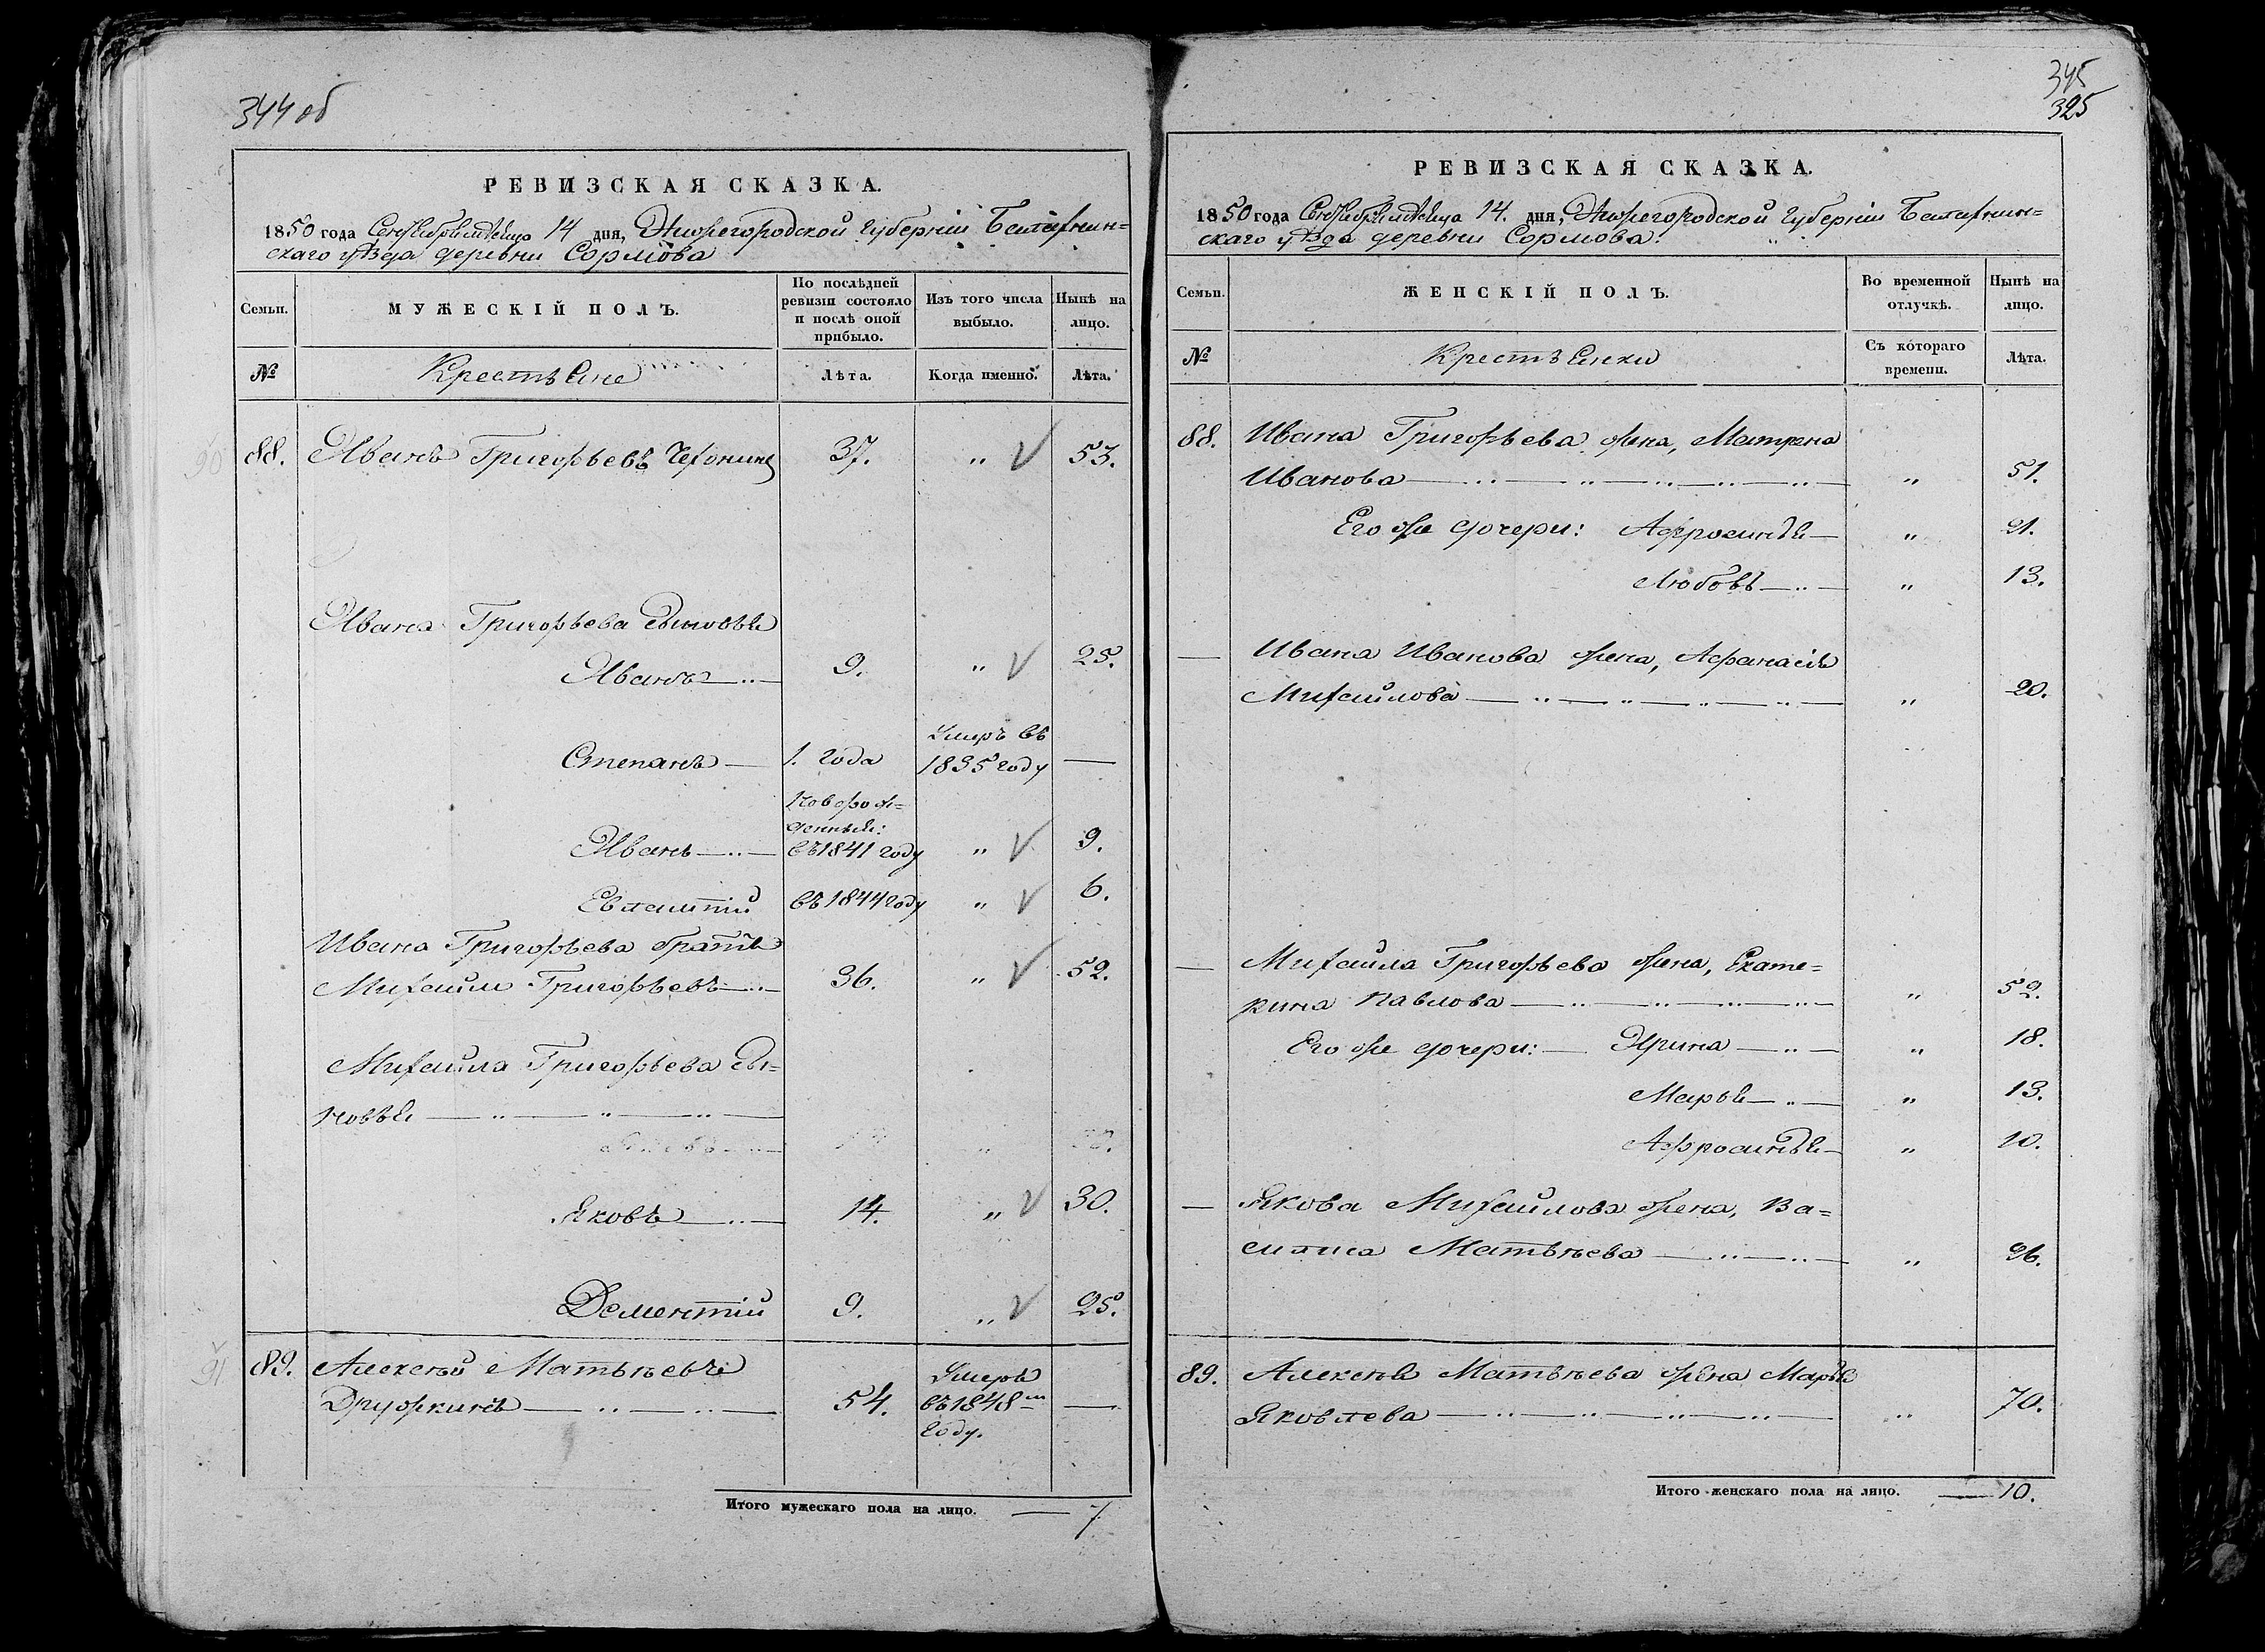 344 об
РЕВИЗСКАЯ СКАЗКА.
1850 года Сентября мѣсяца 14 дня, Нижегородской губернiи Балахнин=
скаго уѣзда деревни Сормова
Семьи.
МУЖЕСКІЙ ПОЛЪ.
По послѣдней
ревизіи состояло
и послѣ оной
прибыло.
Изъ того числа
выбыло.
Нынѣ на
лицо.
№
Крестьяне
Лѣта.
Когда именно.
Лѣта.
90
88. Иванъ Григорьевъ Чехонинъ 37. „ √ 53.
Ивана Григорьева сыновья
Иванъ — „ — 9. „ √ 25.
Степанъ — 1. года Умеръ въ
1835 году —
Новорож=
денные:
Иванъ — „ — въ 1841 году „ √ 9.
Евлампій въ 1844 году „ √ 6.
Ивана Григорьева братъ
Михаилъ Григорьевъ — „ — 36. „ √ 52.
Михаила Григорьева сы=
новья — „ — „ — „ —
Яковъ — „ — 14. „ √ 30.
Дементій 9. „ √ 25.
91
89. Алексѣй Матвѣевъ
Дружкинъ — „ — „ — 54. Умеръ
въ 1848 м
году. —
Итого мужескаго пола на лицо. — 7
345
325
РЕВИЗСКАЯ СКАЗКА.
1850 года Сентября мѣсяца 14. дня, Нижегородской губерніи Балахнин=
скаго уѣзда деревни Сормова.
Семьи.
ЖЕНСКІЙ ПОЛЪ.
Во временной
отлучкѣ.
Нынѣ на
лицо.
№
Крестьянки
Съ котораго
времени.
Лѣта.
88. Ивана Григорьева жена, Матрена
Иванова — „ — „ — „ — „ — „ — „ 51.
Его же дочери: Афросинья — „ 21.
Любовь — „ — „ 13.
— Ивана Иванова жена, Афанасія
Михайлова — „ — „ — „ — „ — „ 20.
— Михаила Григорьева жена, Екате=
рина Павлова — „ — „ — „ — „ — „ 52.
Его же дочери: — Ирина — „ — „ 18.
Марья — „ — „ 13.
Афросинья — „ 10.
— Якова Михайлова жена, Ва=
силиса Матвѣева — „ — „ — „ 26.
89. Алексѣя Матвѣева жена Марья
Яковлева — „ — „ — „ — „ — „ 70.
Итого женскаго пола на лицо. — 10.